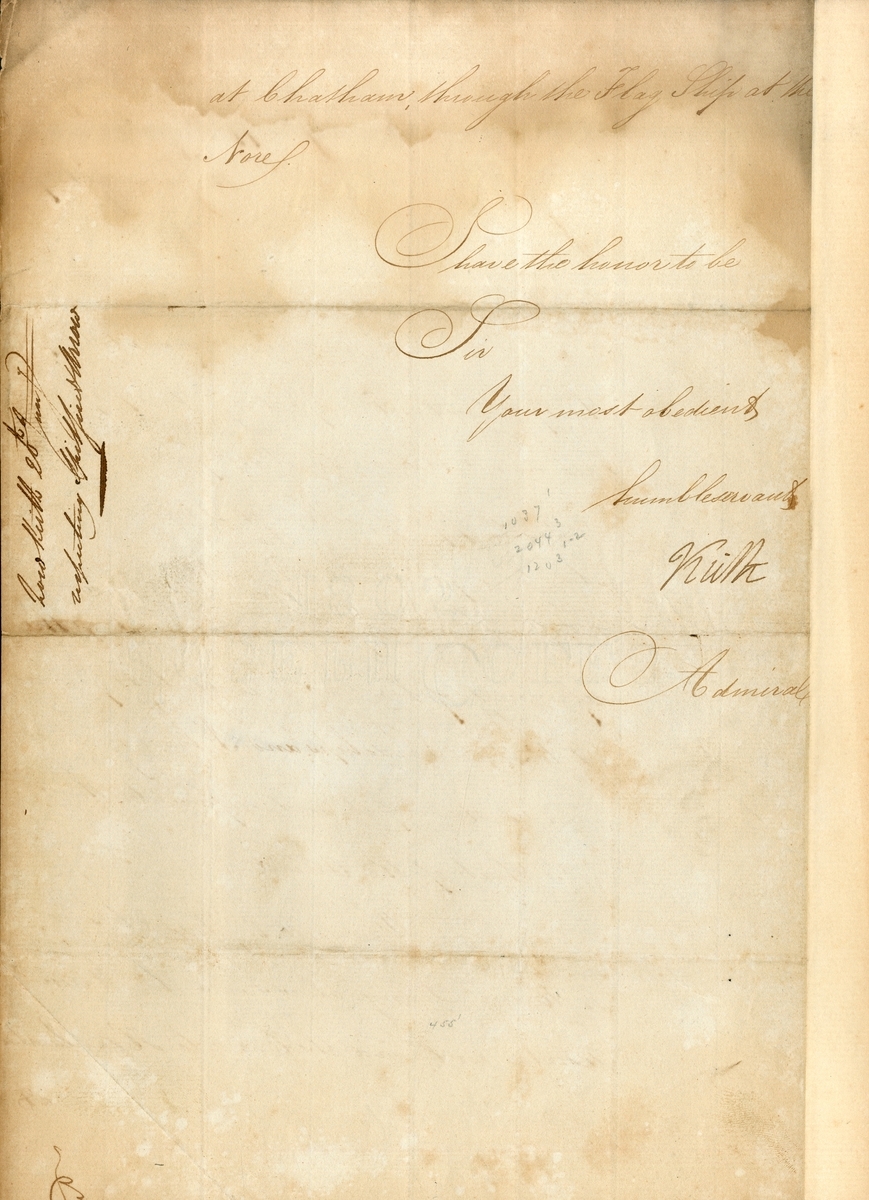 at Chatham, through the Flag Ship at the
Nore.
I have the honor to be
Sir
Your most obedient
humble servant
Keith
Admiral
1037 1
2044 3
1203 1-2
455
Lord Keith
respecting